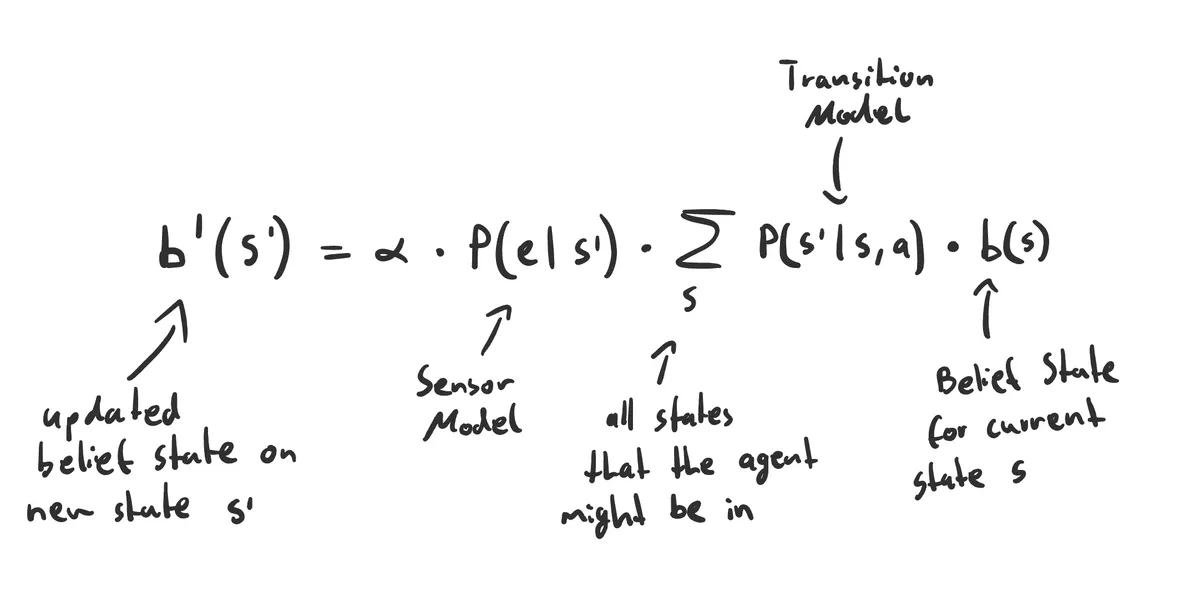 Transition
Model
b'(s') = α · P(e| s') · Σ P(s'|s,a) · b(s)
s
updated
belief state on
new state s'
Sensor
Model
all states
that the agent
might be in
Belief State
for current
state s